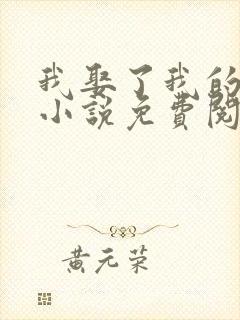 我娶了我的
小说免費閱
黄元荣